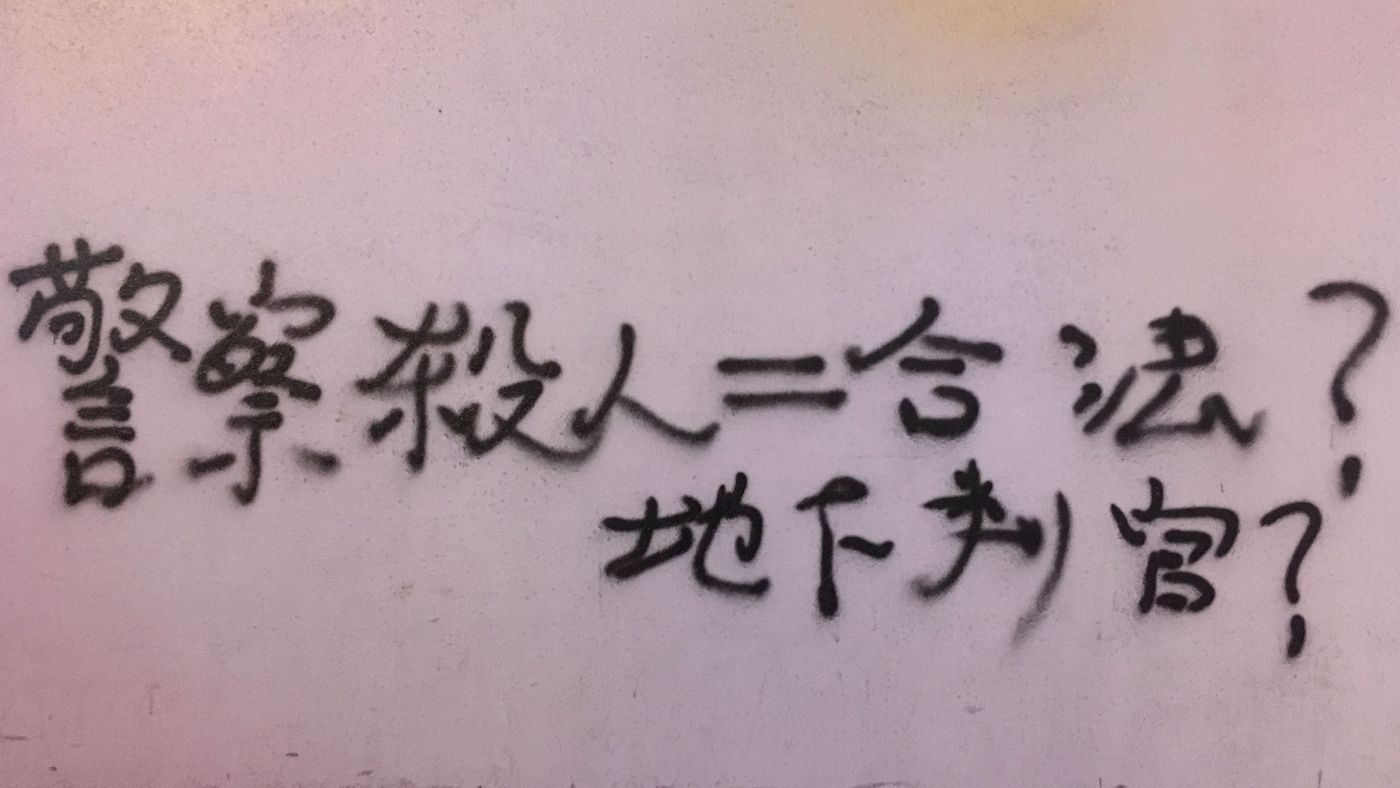 警察殺人=合法?
地下判官?